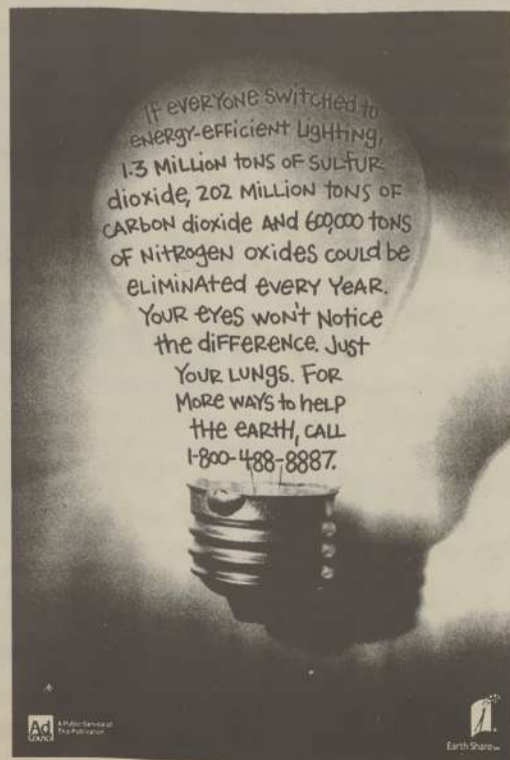 If everyone switched to
energy-efficient lighting,
1.3 million tons of sulfur
dioxide, 202 million tons of
carbon dioxide and 600,000 tons
of nitrogen oxides could be
eliminated every year.
Your eyes won't notice
the difference. Just
your lungs. For
more ways to help
the earth, call
1-800-488-8887.
Ad
Council
A Public Service of
This Publication
Earth Share